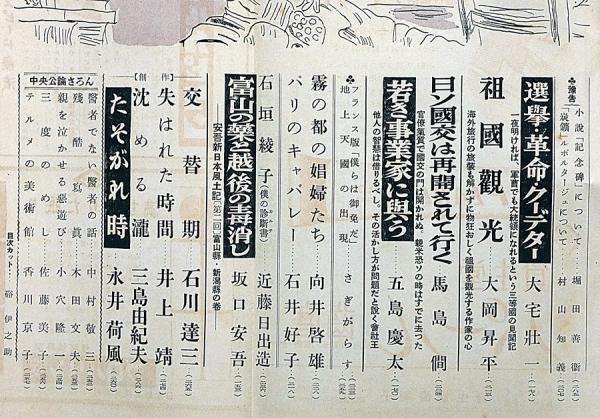 ◆豫告
小説「記念碑」について……堀田善衞
「炭鑛」ルポルタージュについて……村山知義
選擧・革命・クーデター……大宅壯一
一夜明ければ、軍曹でも大統領になれるという三等國の見聞記
祖國觀光……大岡昇平
海外旅行の旅裝も解かずに物狂おしく祖國を觀光する作家の心
日ソ國交は再開されて行く……馬島僴
官僚氣質で國交の門は開かれぬ。親米恐ソの時はすでに去った
若き事業家に與う……五島慶太
他人の智慧は借りるべし。その活かし方が問題だと説く會社王
「フランス版「僕らは御免だ」
地上天國の出現……さぎがらす
霧の都の娼婦たち……向井啓雄
パリのキャバレー……石井好子
石垣綾子(僕の診斷書)……近藤日出造
富山の藥と越後の毒消し……坂口安吾
―安吾新日本風土記(第二回)富山縣・新潟縣の卷
交替期……石川達三
失はれた時間……井上靖
【創作】
沈める瀧……三島由紀夫
たそがれ時……永井荷風
中央公論さろん
醫者でない醫者の話……中村敬三
殘酷な寫眞……木田文夫
親を泣かせる惡遊び……小穴隆一
三度のめし……佐藤美子
テルメの美術館……香川京子
目次カット……硲伊之助